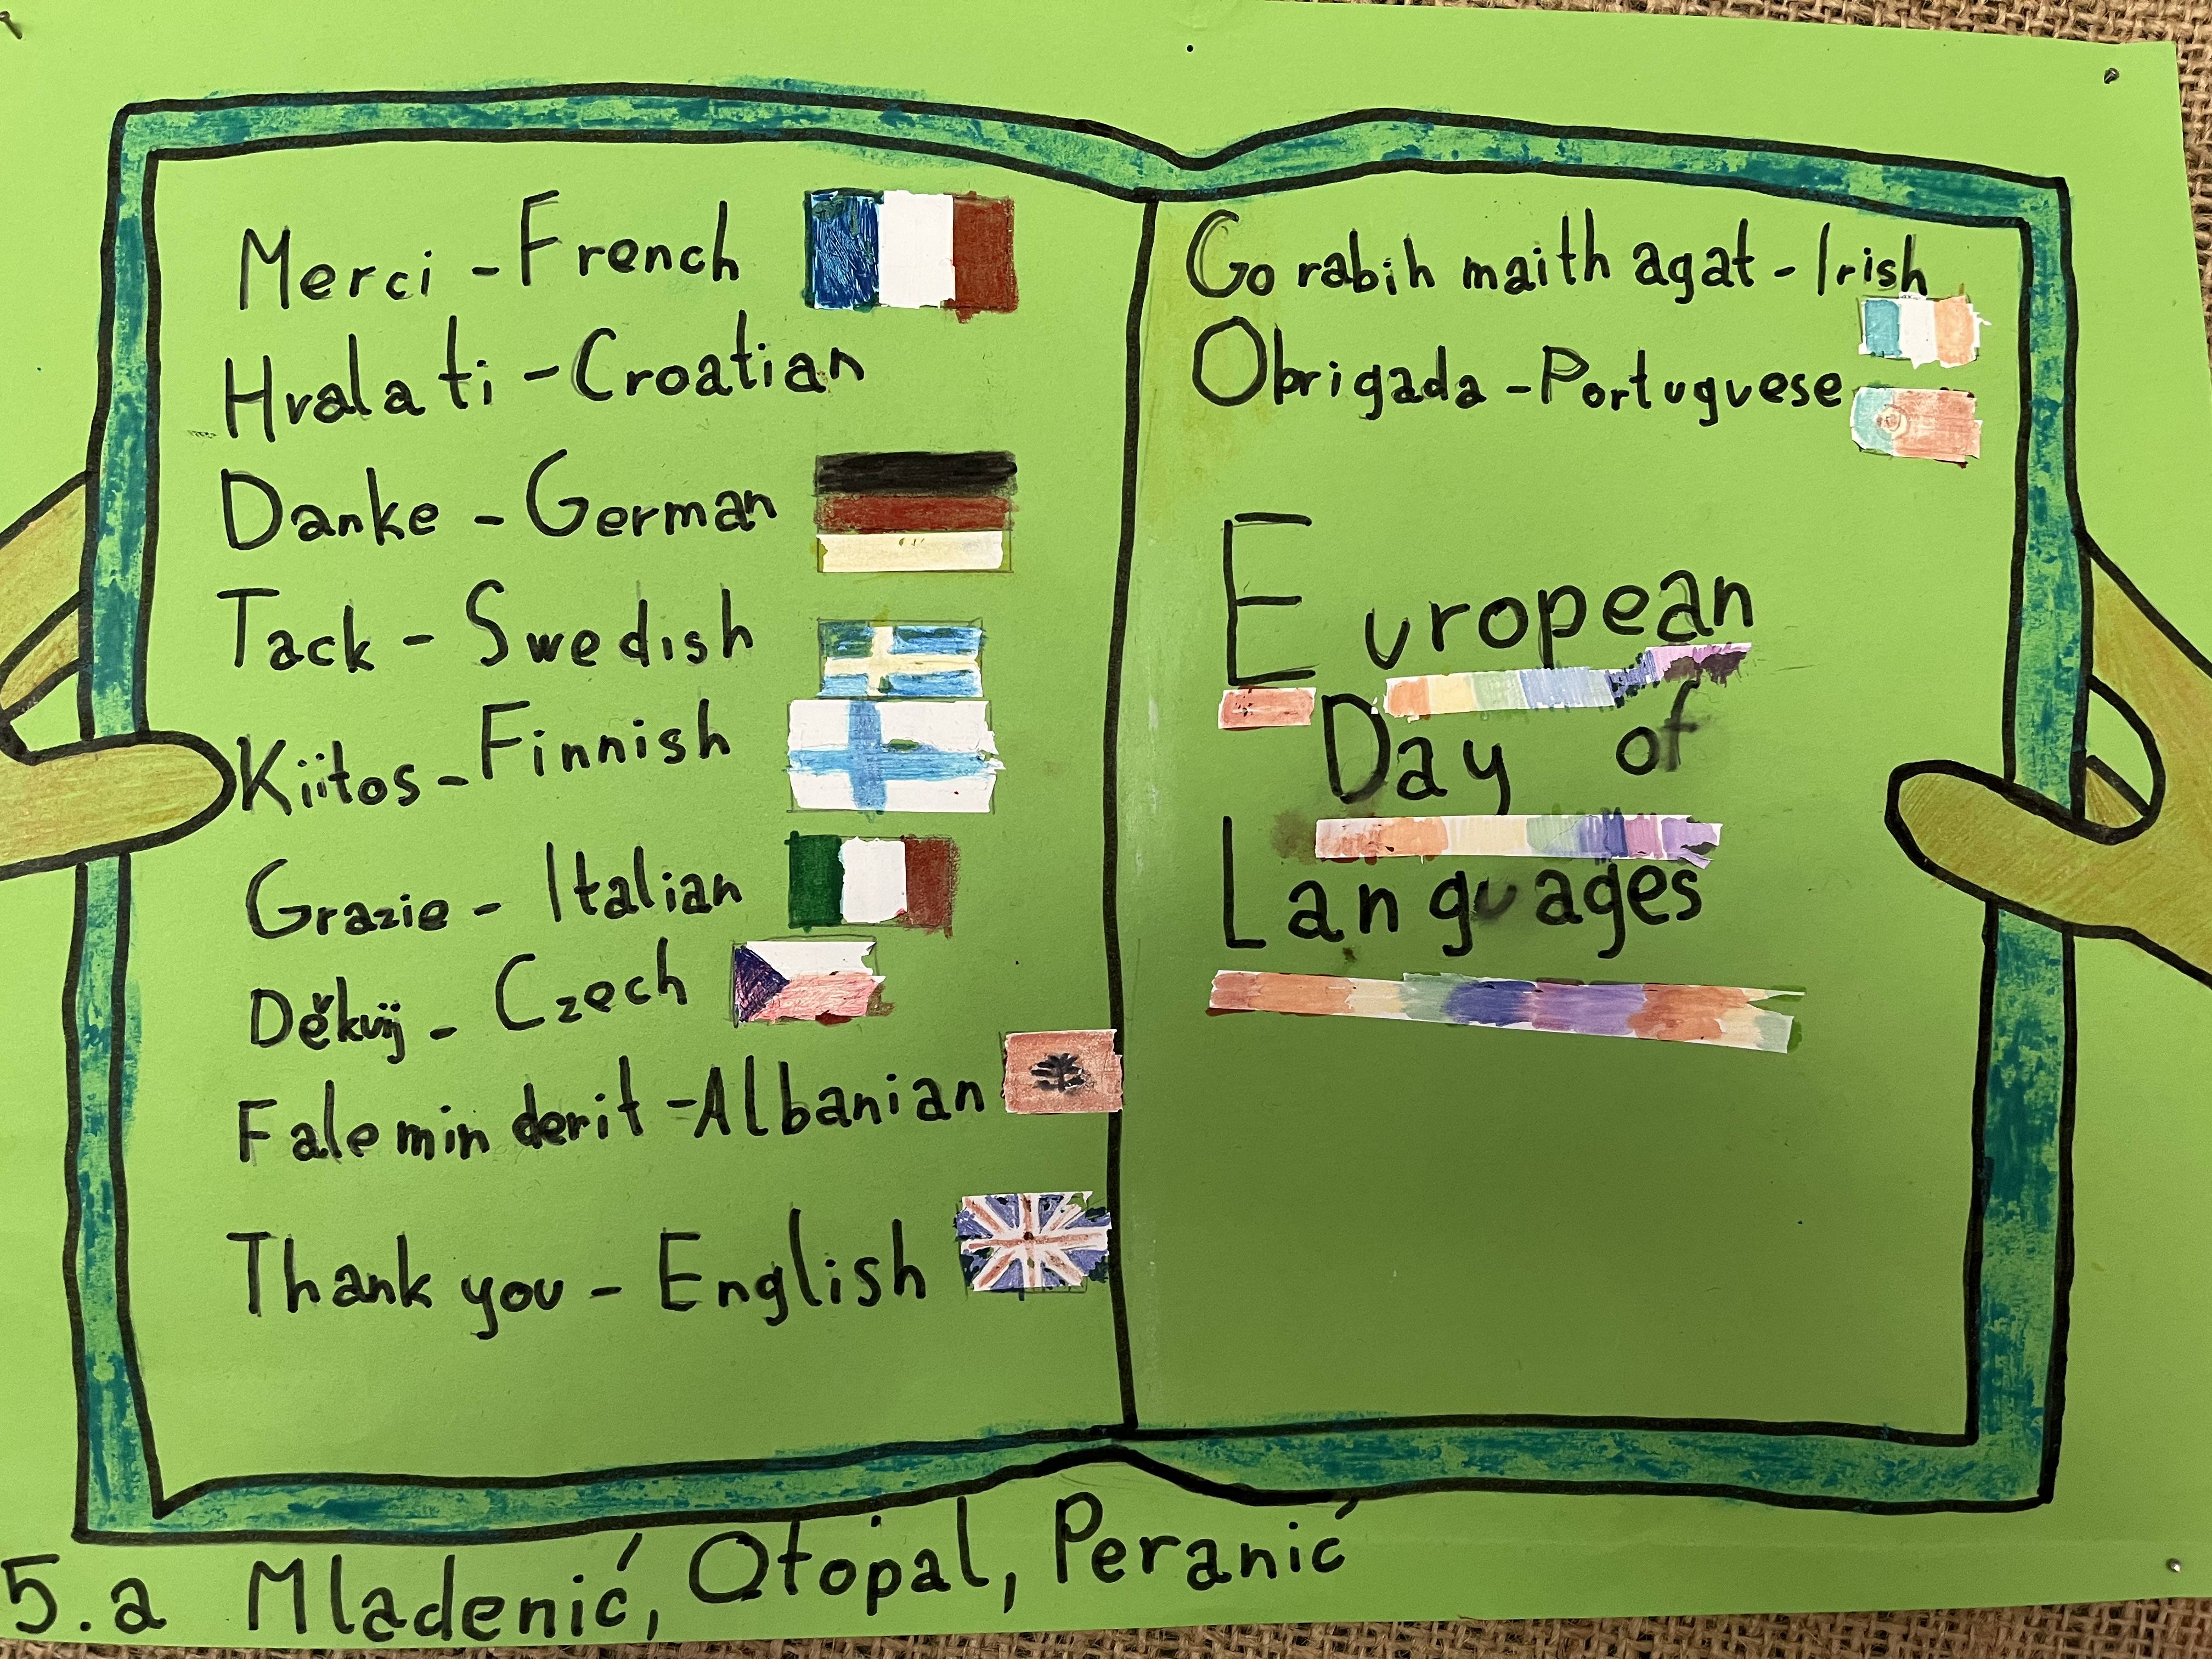 Merci - French
Hvala ti - Croatian
Danke - German
Tack - Swedish
Kiitos - Finnish
Grazie - Italian
Děkuij - Czech
Fale min derit - Albanian
Thank you - English
Go rabih maith agat - Irish
Obrigada - Portuguese
European
Day of
Languages
5.a Mladenić, Otopal, Peranić